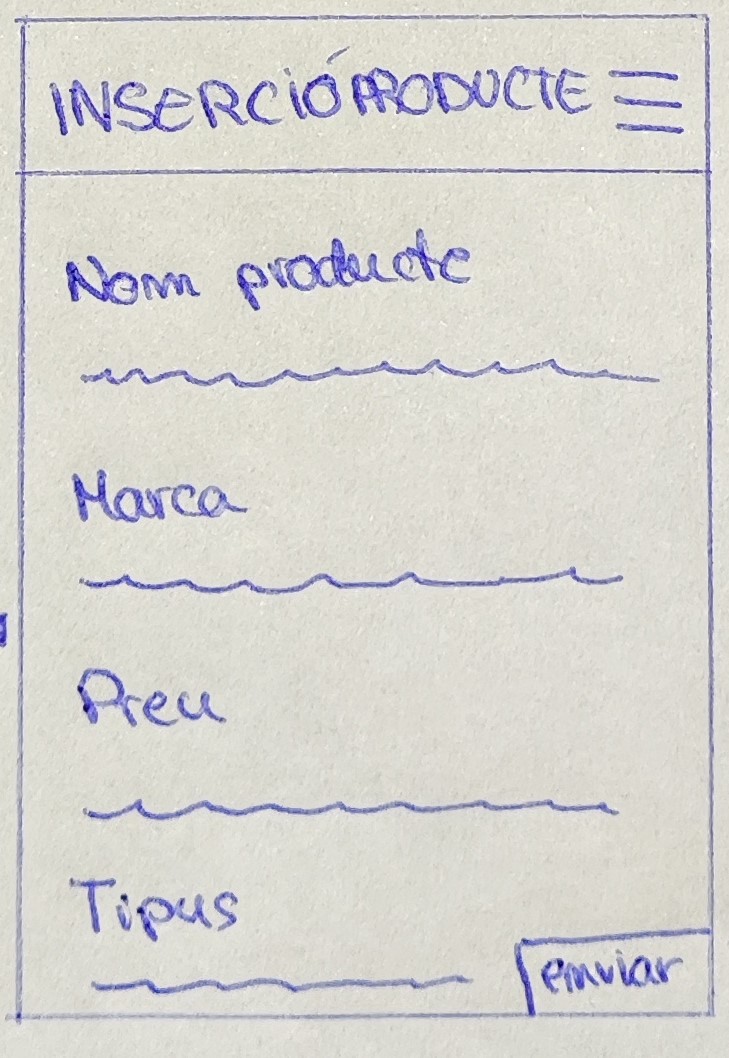 INSERCIÓ PRODUCTE
Nom producte
Marca
Preu
Tipus
enviar